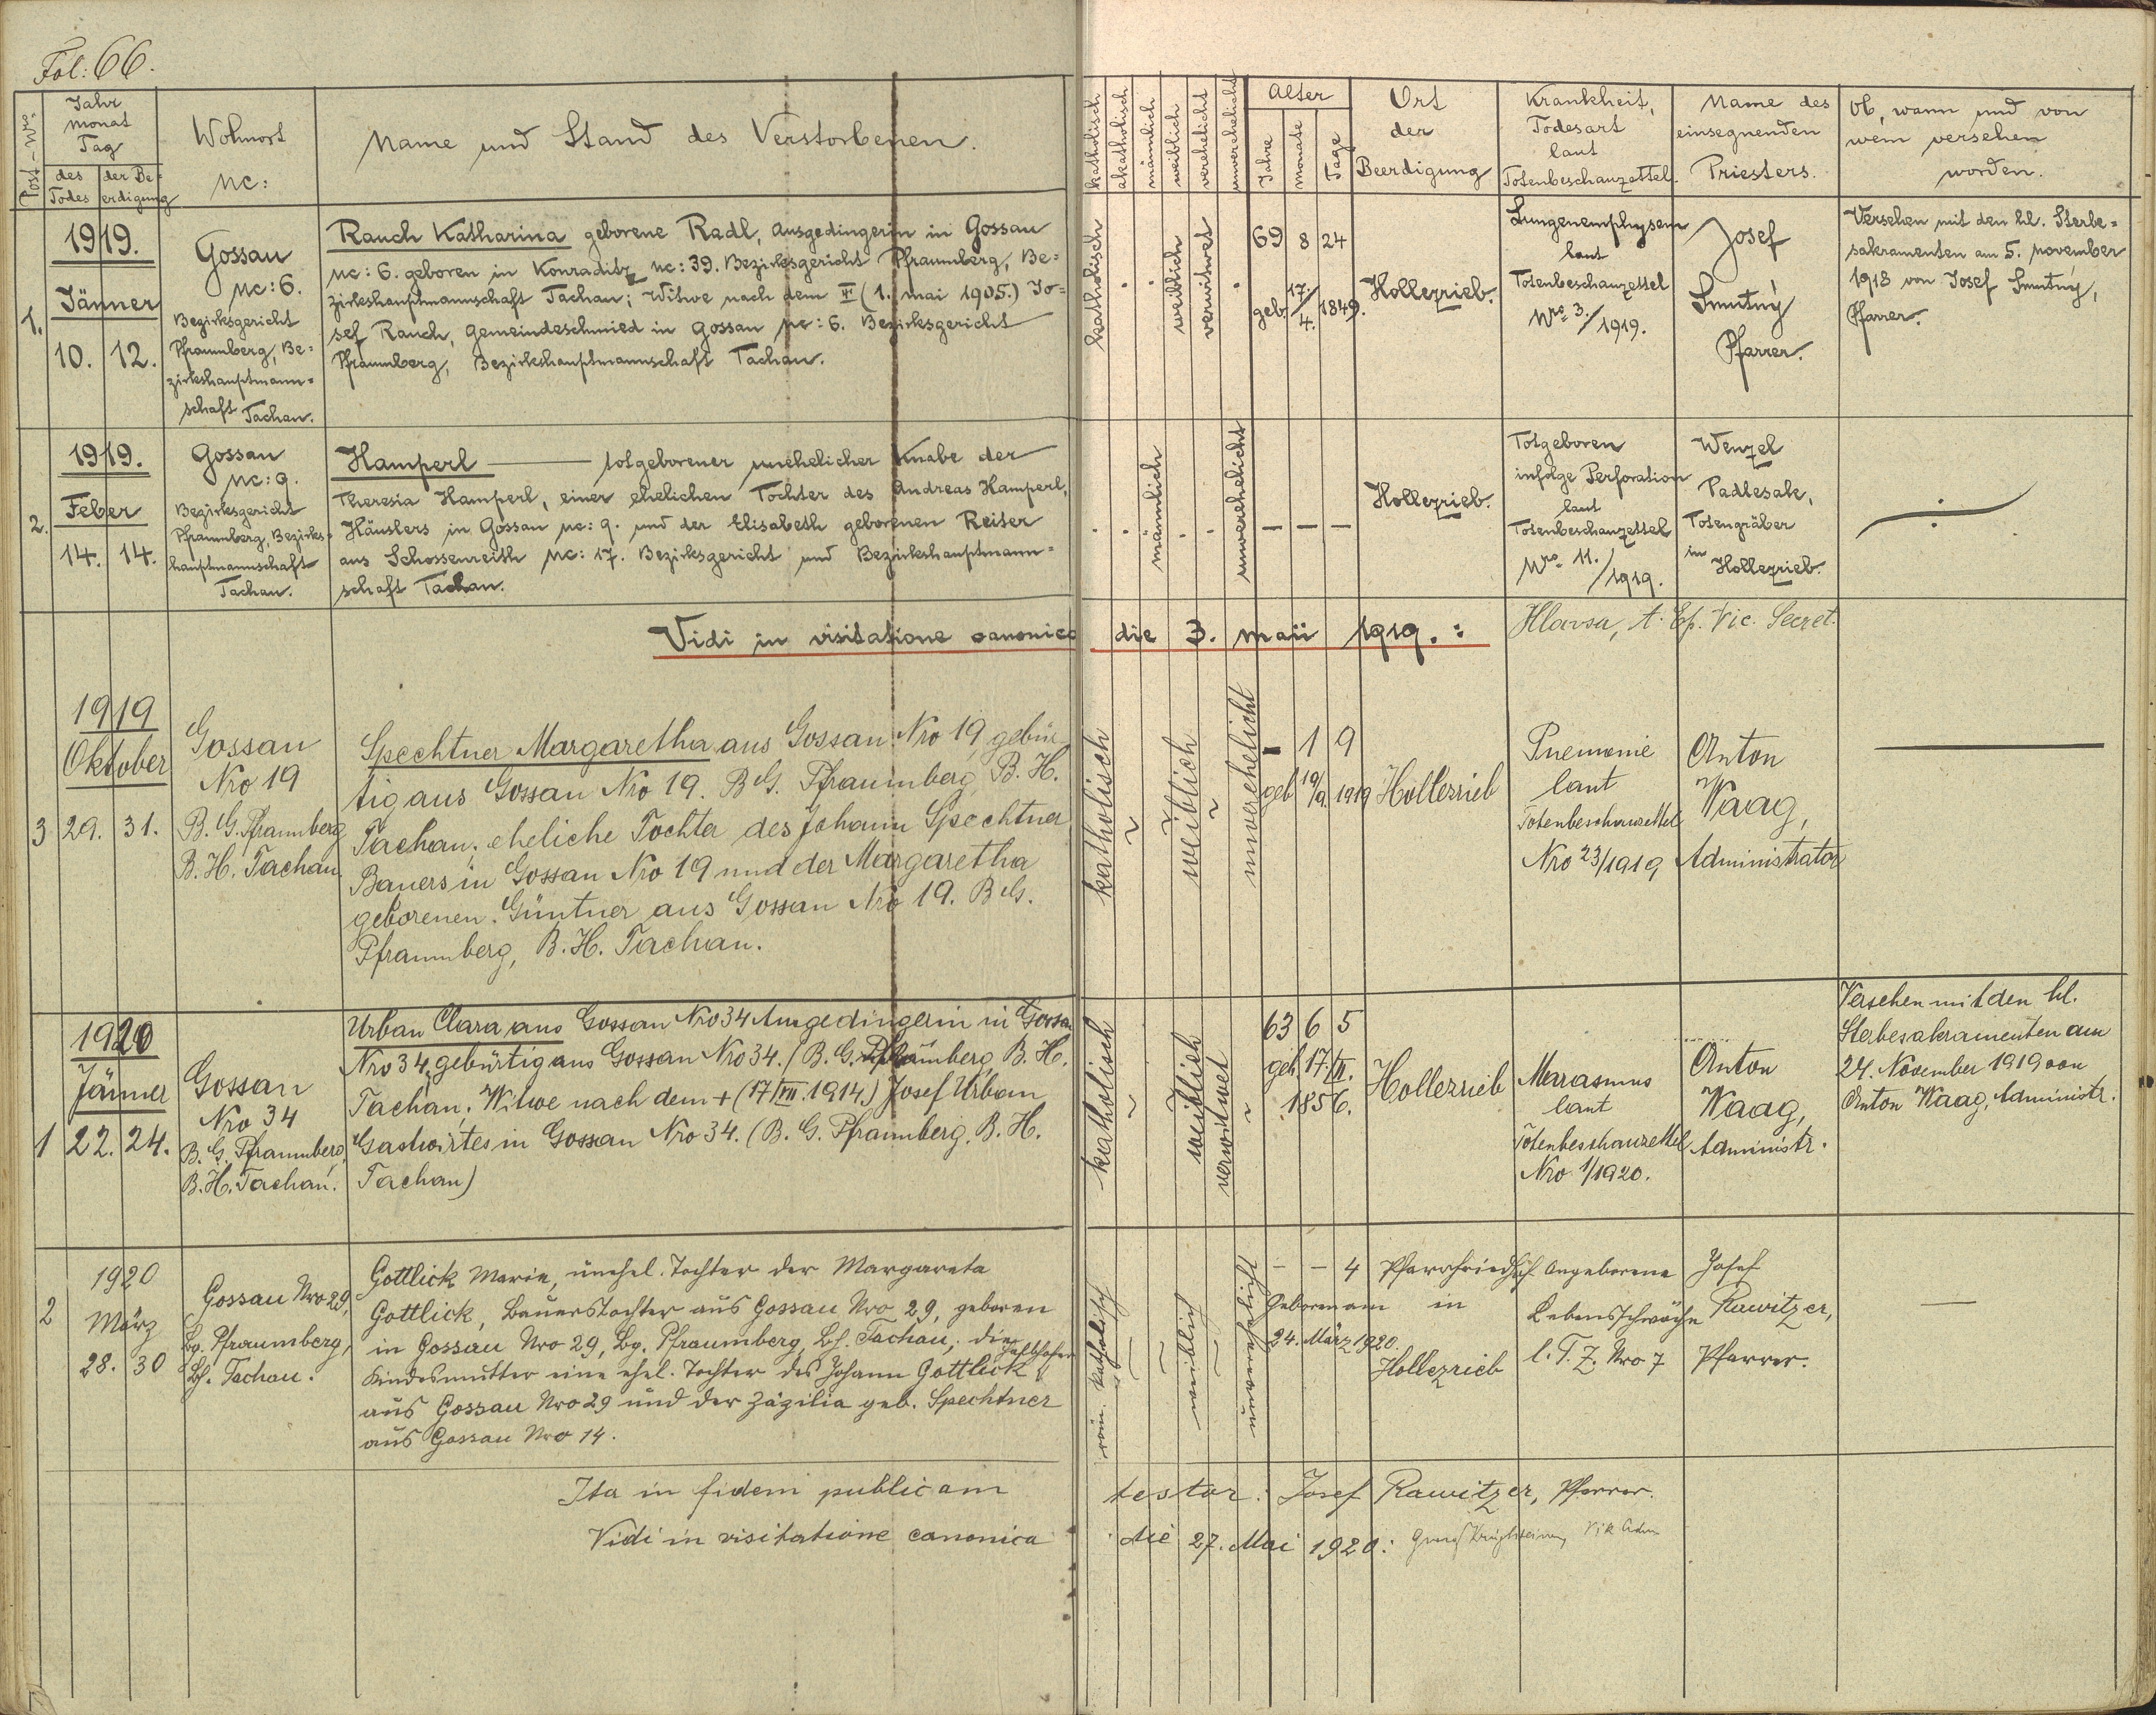 Fol: 66.
Post-Nro.
Jahr
Monat
Tag
des Todes
der Be=
erdigung
Wohnort
Nc:
Name und Stand des Verstorbenen.
katholisch
akatholisch
männlich
weiblich
verehelicht
unverehelicht
Alter
Jahre
Monate
Tage
Ort
der
Beerdigung
Krankheit,
Todesart
laut
Totenbeschauzettel.
Name des
einsegnenden
Priesters.
Ob, wann und von
wem versehen
worden.
1.
1919.
Jänner
10. 12.
Gossau
Nc: 6.
Bezirksgericht
Pfraumberg, Be=
zirkshauptmann=
schaft Tachau.
Rauch Katharina geborene Radl, Ausgedingerin in Gossau
Nc: 6. geboren in Konraditz Nc: 39. Bezirksgericht Pfraumberg, Be=
zirkshauptmannschaft Tachau; Witwe nach dem (1. Mai 1905.) Jo=
sef Rauch, Gemeindeschmied in Gossau Nc: 6. Bezirksgericht
Pfraumberg, Bezirkshauptmannschaft Tachau.
katholisch
weiblich
verwitwet
69 8 24
geb. 17./4. 1849.
Hollezrieb.
Lungenemphysem
laut
Totenbeschauzettel
Nro. 3./1919.
Josef
Smutný
Pfarrer.
Versehen mit den hl. Sterbe=
sakramenten am 5. November
1918 von Josef Smutný,
Pfarrer.
2.
1919.
Feber
14. 14.
Gossau
Nc: 9.
Bezirksgericht
Pfraumberg, Bezirks=
hauptmannschaft
Tachau.
Hamperl ——— totgeborener unehelicher Knabe der
Theresia Hamperl, einer ehelichen Tochter des Andreas Hamperl,
Häuslers in Gossau Nc: 9. und der Elisabeth geborenen Reiser
aus Schossenreith Nc: 17. Bezirksgericht und Bezirkshauptmann=
schaft Tachau.
männlich
unverehelicht
— — —
Hollezrieb.
Totgeboren
infolge Perforation
laut
Totenbeschauzettel
Nro. 11./1919.
Wenzel
Padlesak,
Totengräber
in
Hollezrieb.
Vidi in visitatione canonica die 3. Maii 1919.: Hlavsa, A. Ep. Vic. Secret.
3
1919
Oktober
29. 31.
Gossau
Nro 19
B. G. Pfraumberg
B. H. Tachau.
Spechtner Margaretha aus Gossau Nro 19 gebür
tig aus Gossau Nro 19. B G. Pfraumberg, B. H.
Tachau, eheliche Tochter des Johann Spechtner
Bauers in Gossau Nro 19 und der Margaretha
geborenen Güntner aus Gossau Nro 19. B G.
Pfraumberg, B. H. Tachau.
katholisch
weiblich
unverehelicht
- 1 9
geb 19/9. 1919
Hollezrieb
Pnemonie
laut
Totenbeschauzettel
Nro 23/1919
Anton
Waag,
Administrator
1
1920
Jänner
22. 24.
Gossau
Nro 34
B. G. Pfraumberg,
B. H. Tachau.
Urban Clara aus Gossau Nro 34 Ausgedingerin in Gossau
Nro 34, gebürtig aus Gossau Nro 34. (B. G. Pfraumberg, B. H.
Tachau, Witwe nach dem + (17/VII. 1914.) Josef Urban
Gastwirtes in Gossau Nro 34. (B. G. Pfraumberg, B. H.
Tachau)
katholisch
weiblich
verwitwet
63 6 5
geb. 17.
1856.
Hollezrieb
Marasmus
laut
Totenbeschauzettel
Nro 1/1920.
Anton
Waag,
Administr.
Versehen mit den hl.
Sterbesakramenten am
24. November 1919 von
Anton Waag, Administr.
2
1920
März
28. 30
Gossau Nro 29,
Bg. Pfraumberg,
Bh. Tachau.
Gottlick Marie, unehel. Tochter der Margareta
Gottlick, Bauerstochter aus Gossau Nro 29, geboren
in Gossau Nro 29, Bg. Pfraumberg, Bh. Tachau; die
Kindesmutter eine ehel. Tochter des Johann Gottlick
aus Gossau Nro 29 und der Zäzilia geb. Spechtner
aus Gossau Nro 14.
röm. katholisch
weiblich
unverehelicht
- - 4
Geboren am
24. März 1920.
Pfarrfriedhof
in
Hollezrieb
Angeborene
Lebensschwäche
l. T. Z. Nro 7
Josef
Rawitzer,
Pfarrer.
Ita in fidem publicam testor: Josef Rawitzer, Pfarrer.
Vidi in visitatione canonica die 27. Mai 1920: